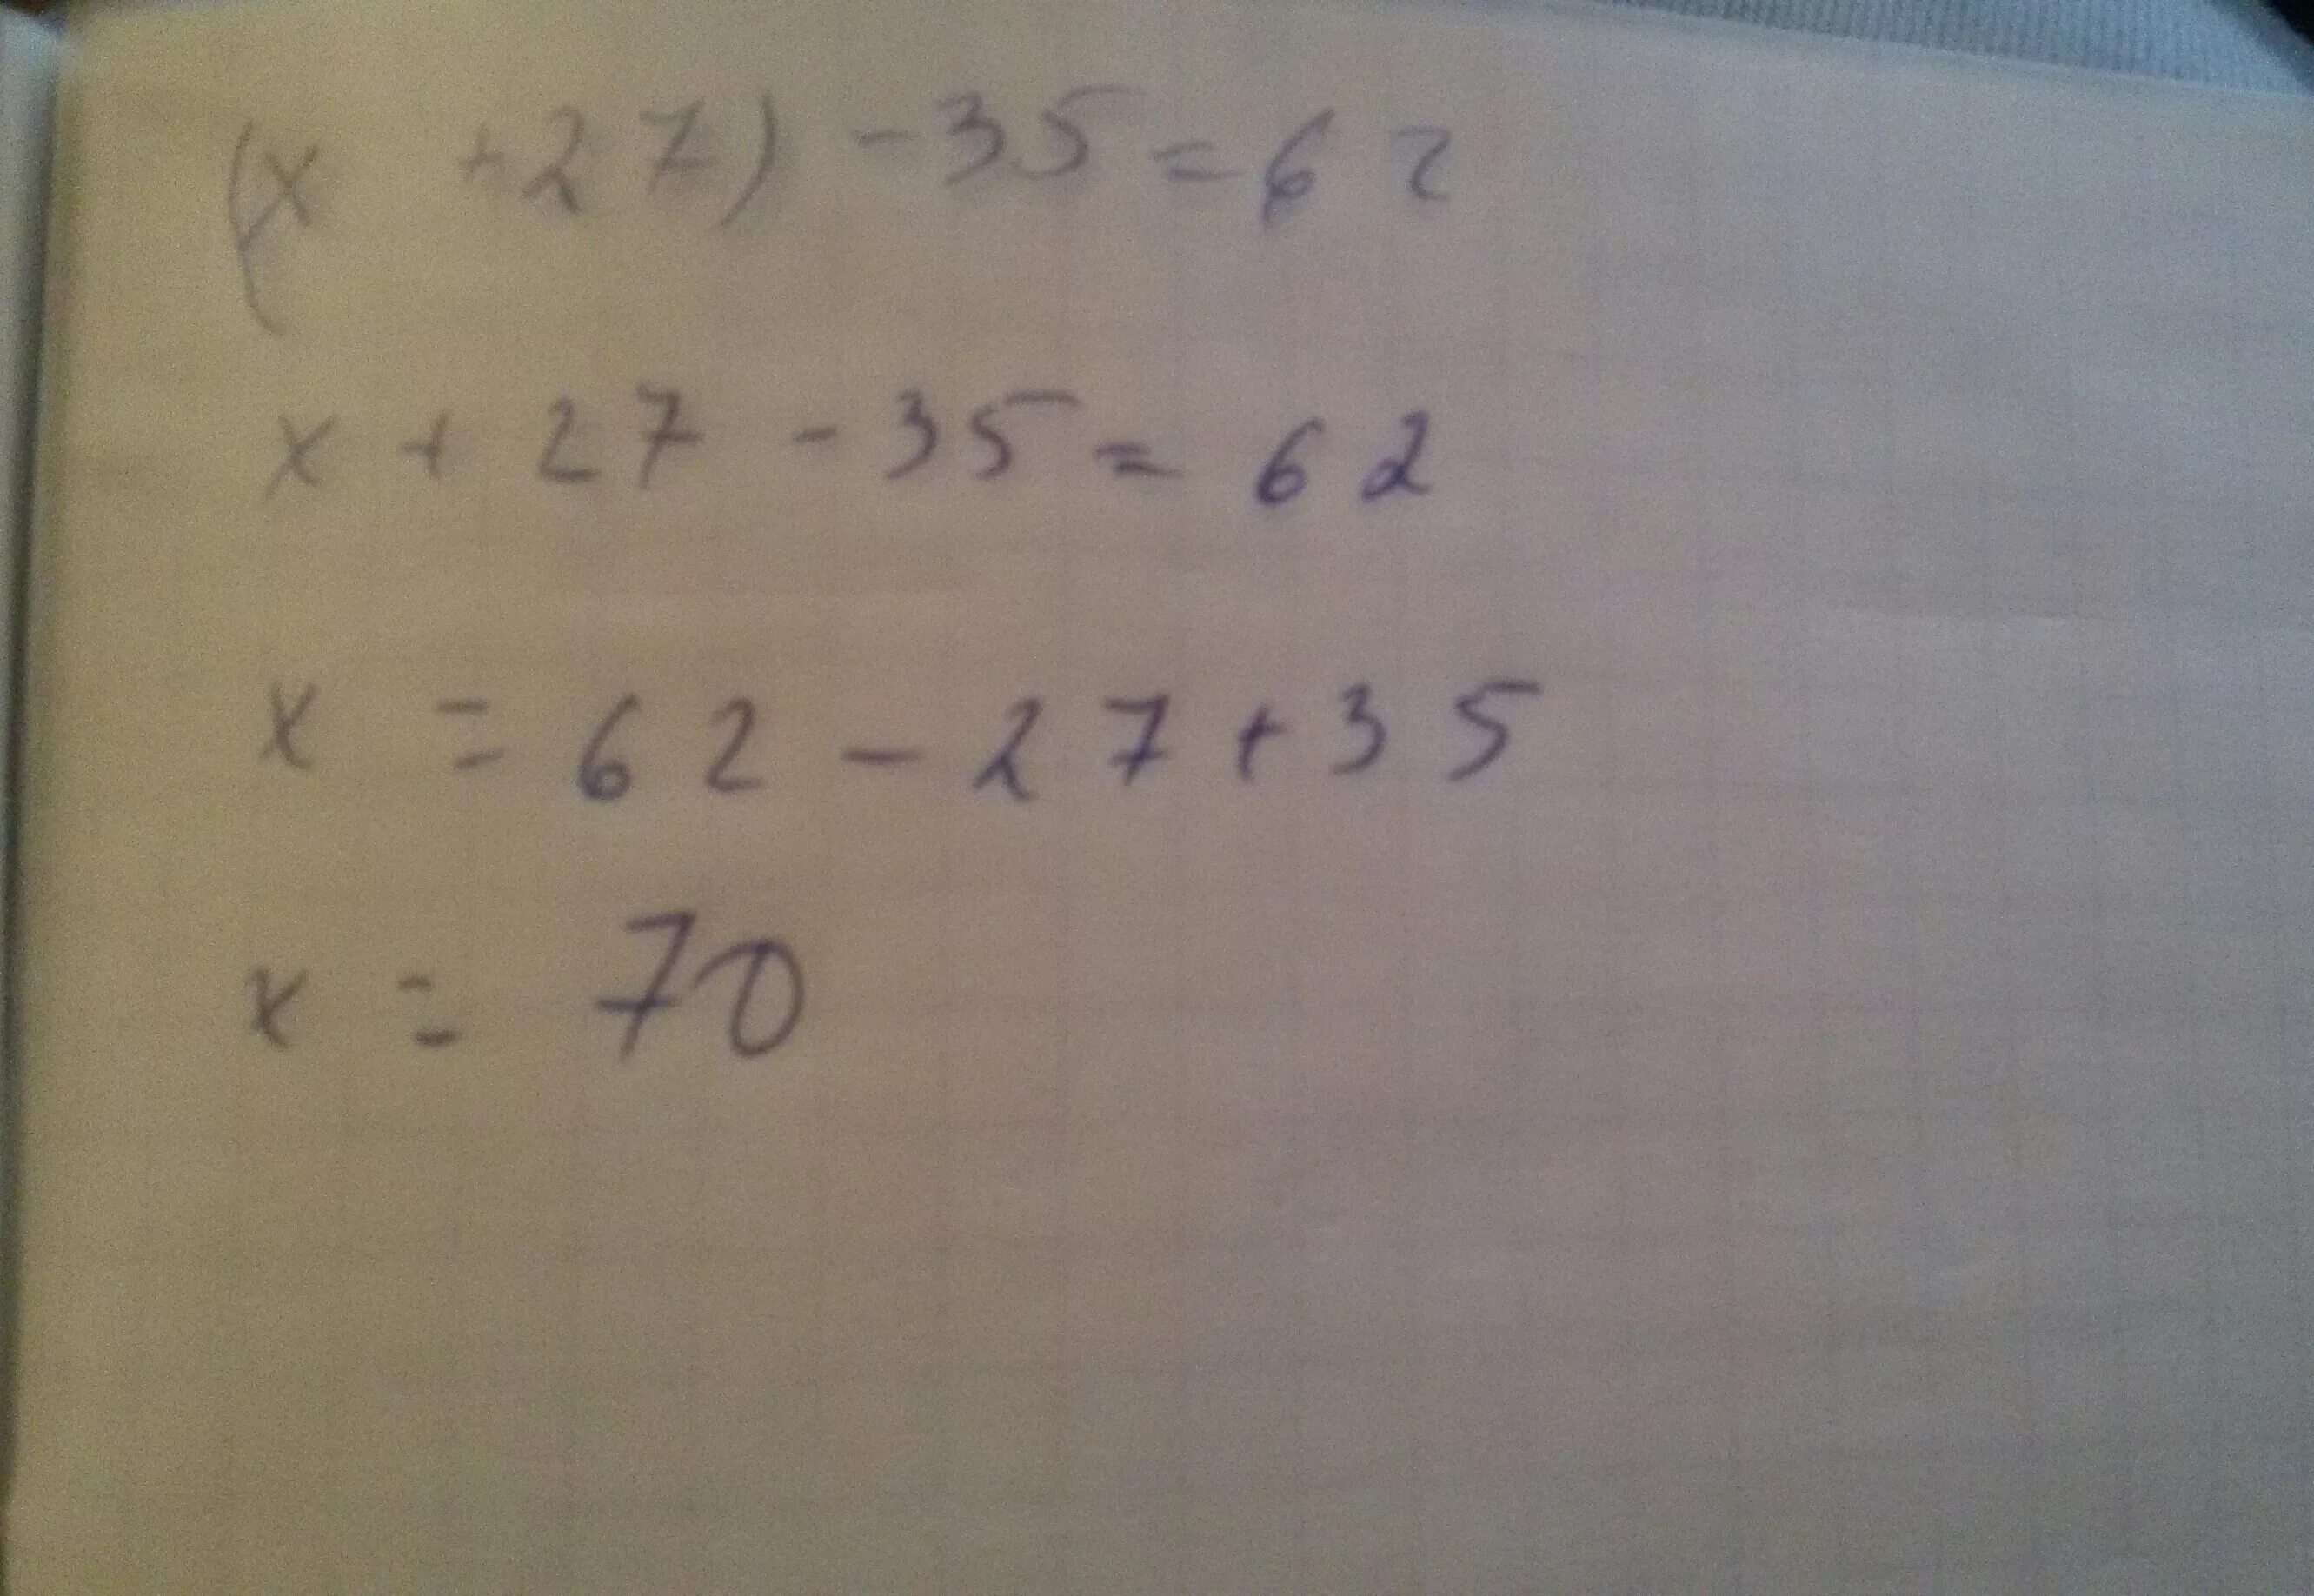 (x + 27) - 35 = 62
x + 27 - 35 = 62
x = 62 - 27 + 35
x = 70